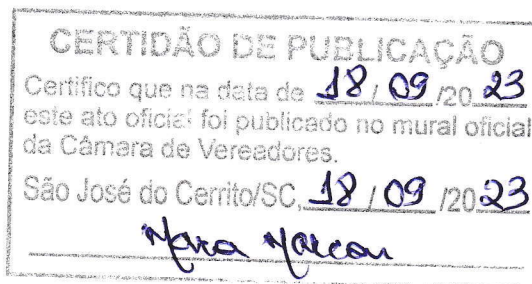 CERTIDÃO DE PUBLICAÇÃO
Certifico que na data de 18/09/2023
este ato oficial foi publicado no mural oficial
da Câmara de Vereadores.
São José do Cerrito/SC, 18/09/2023
Mara Marcon